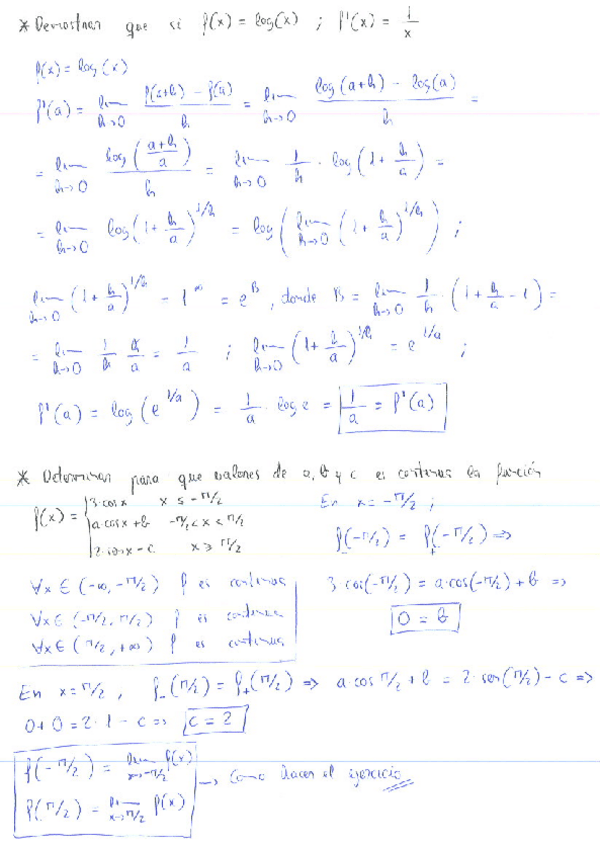 * Demostrar que si f(x) = log(x) ; f'(x) = 1/x
f(x) = log(x)
f'(a) = lim h→0 (f(a+h) - f(a))/h = lim h→0 (log(a+h) - log(a))/h =
= lim h→0 log((a+h)/a)/h = lim h→0 1/h · log(1 + h/a) =
= lim h→0 log(1 + h/a)^(1/h) = log(lim h→0 (1 + h/a)^(1/h)) ;
lim h→0 (1 + h/a)^(1/h) - 1^∞ = e^B, donde B = lim h→0 1/h · (1 + h/a - 1) =
= lim h→0 1/h h/a = 1/a ; lim h→0 (1 + h/a)^(1/h) = e^(1/a) ;
f'(a) = log(e^(1/a)) = 1/a · log e = 1/a = f'(a)
* Determinar para que valores de a, b y c es continua la función
f(x) = { 3·cosx x ≤ -π/2
a·cosx + b -π/2 < x < π/2
2·senx - c x ≥ π/2
En x = -π/2 ;
f₋(-π/2) = f₊(-π/2) ⇒
3·cos(-π/2) = a·cos(-π/2) + b ⇒
0 = b
∀x ∈ (-∞, -π/2) f es continua
∀x ∈ (-π/2, π/2) f es continua
∀x ∈ (π/2, +∞) f es continua
En x = π/2 , f₋(π/2) = f₊(π/2) ⇒ a·cos π/2 + b = 2·sen(π/2) - c ⇒
0 + 0 = 2·1 - c ⇒ c = 2
f(-π/2) = lim x→-π/2 f(x)
f(π/2) = lim x→π/2 f(x)
→ Como hacer el ejercicio